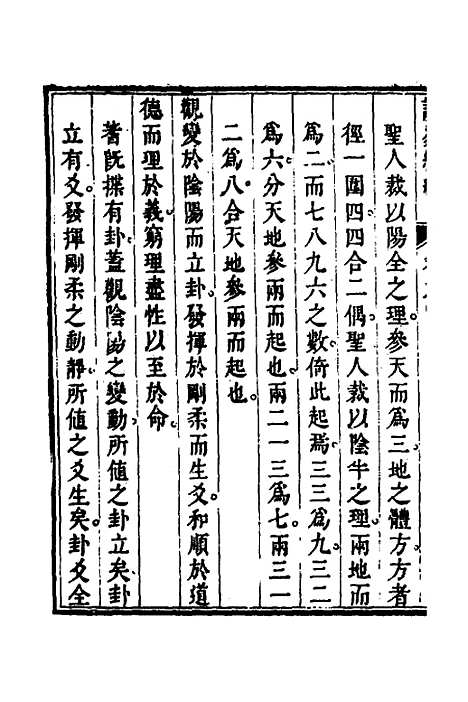 聖人裁以陽全之理參天而爲三地之體方方者
徑一圍四四合二偶聖人裁以陰半之理兩地而
爲二而七八九六之數倚此起焉三三爲九三二
爲六分天地參兩而起也兩二一三爲七兩三一
二爲八合天地參兩而起也
觀變於陰陽而立卦發揮於剛柔而生爻和順於道
德而理於義窮理盡性以至於命
蓍既揲有卦蓋觀陰陽之變動所値之卦立矣卦
立有爻發揮剛柔之動靜所値之爻生矣卦爻全